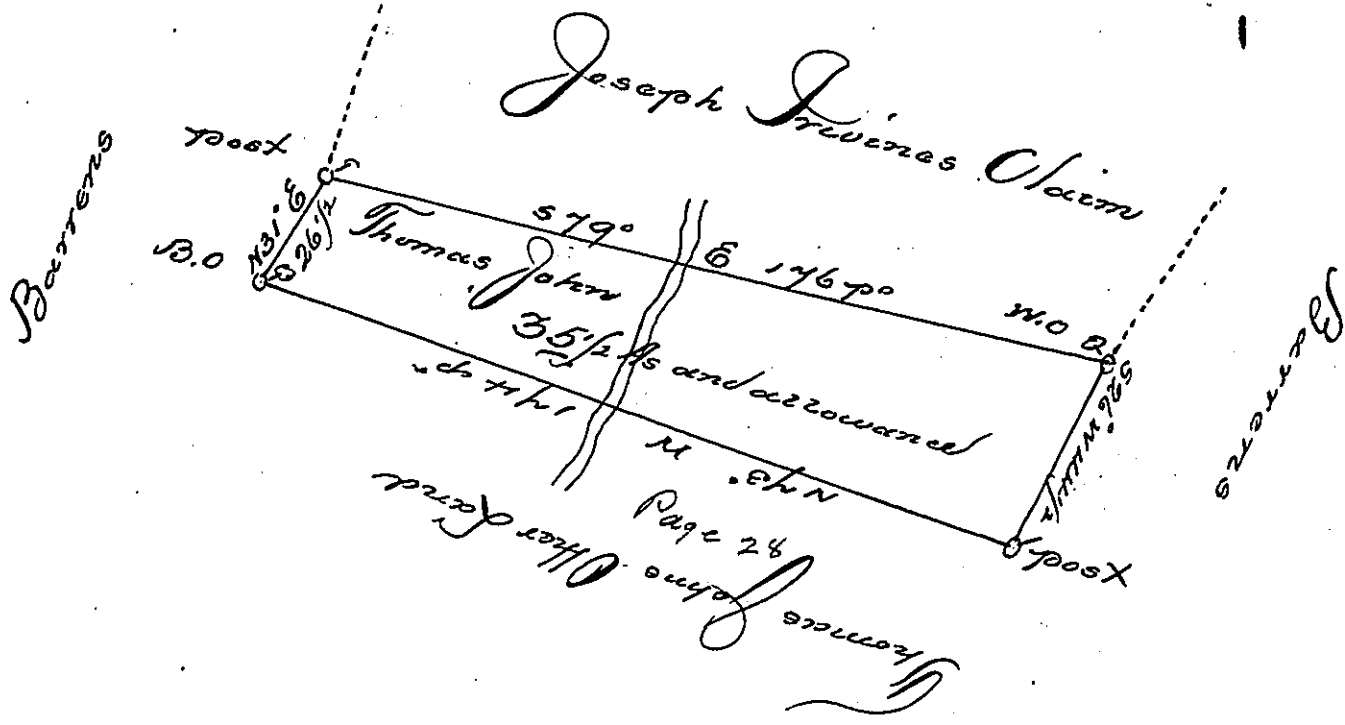 Joseph Irvines Claim
Barrens
post
B.O
N31°E
26 1/2
S 79° E 176 po
Thomas John
35 1/2 As and allowance
W.O
S26°W
Barrens
post
N73° W 174 po
Page 28
Thomas Johns Other Land